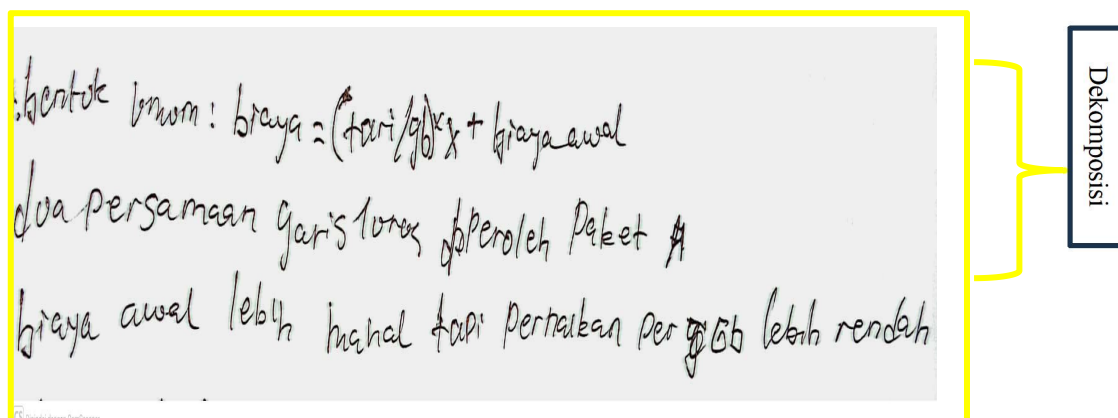 bentuk Umum: biaya = (tari/gb) x x + biaya awal
dua persamaan garis lurus diperoleh Paket A
biaya awal lebih mahal tapi pernaikan per GB lebih rendah
Dekomposisi